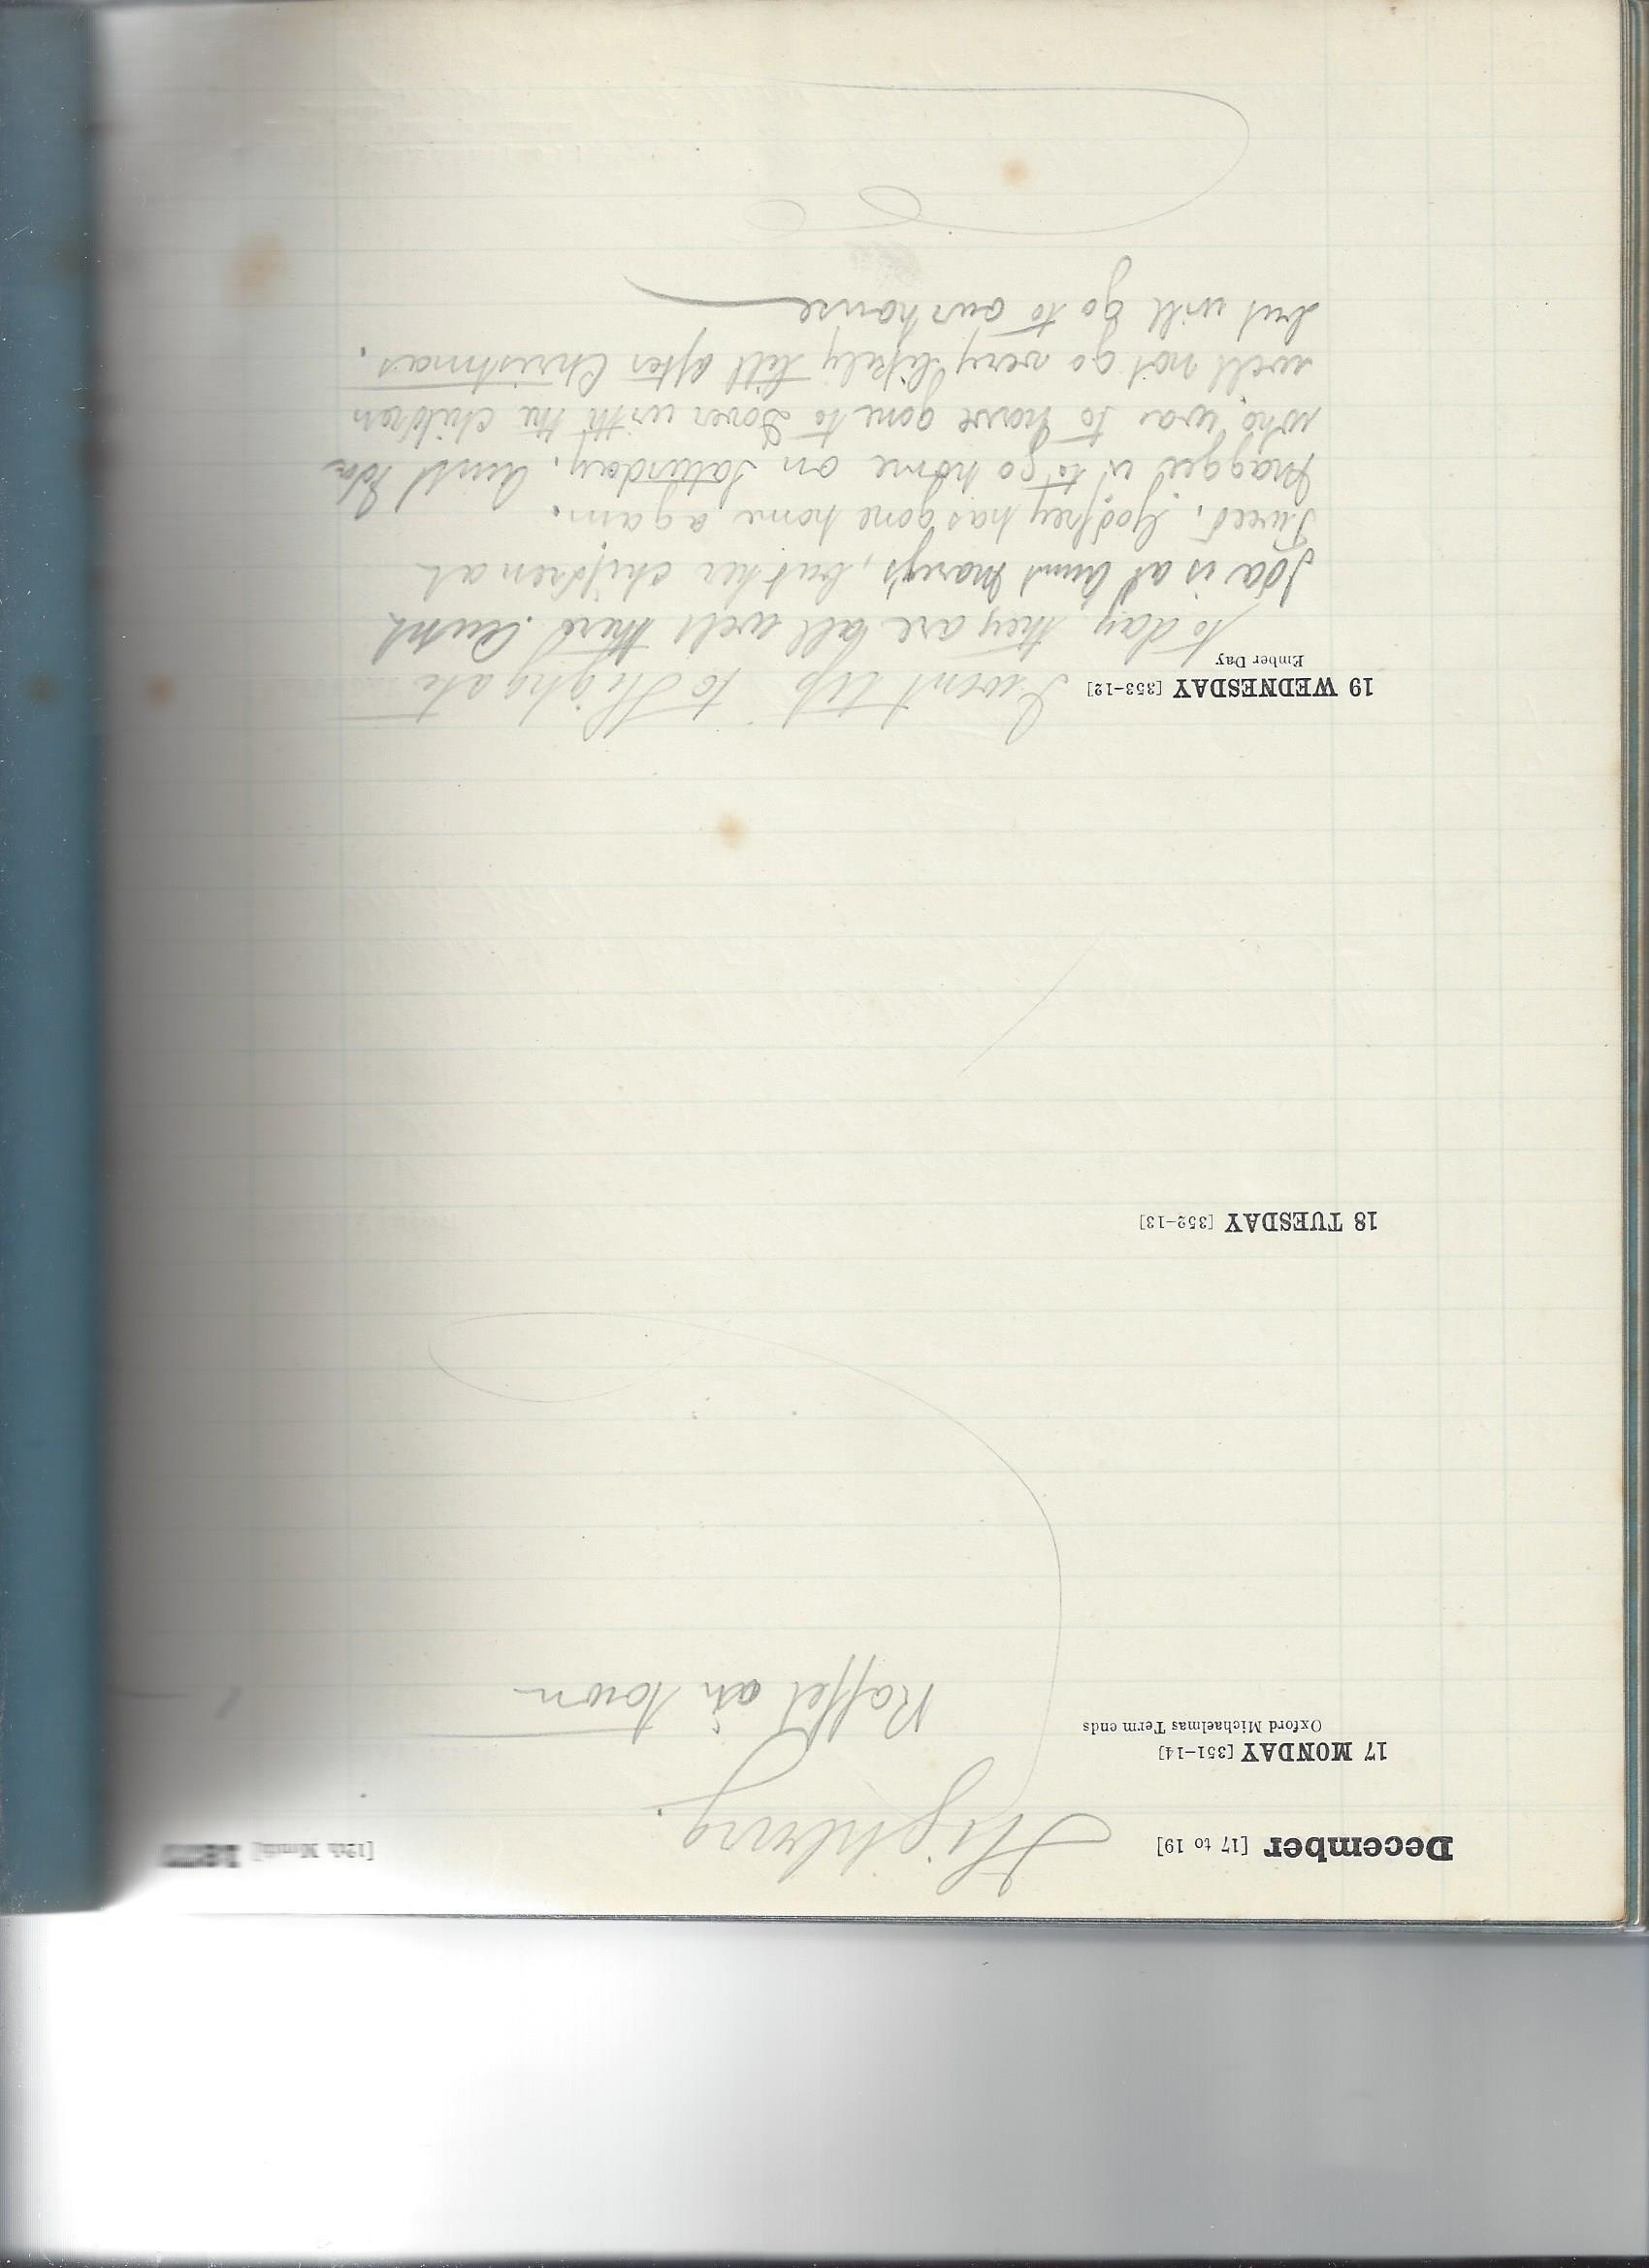 December [17 to 19] [12th Month] 1877
Highbury.
17 MONDAY [351-14]
Oxford Michaelmas Term ends
Raffel in town
18 TUESDAY [352-13]
19 WEDNESDAY [353-12] I went up to Highgate
Ember Day
to day they are all well there. Aunt
Ida is at Aunt Mary's, but her children at
Tweed. Godfrey has gone home again.
Maggie is to go home on Saturday. Aunt Ida
who was to have gone to Dover with the children
will not go very likely till after Christmas.
but will go to our house